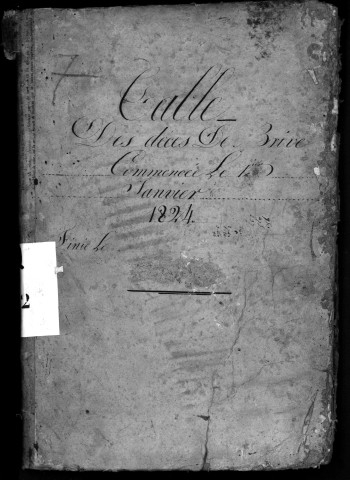 7
Table
Des décès De Brive
Commencée Le 1er
Janvier
1824
Finie Le
2